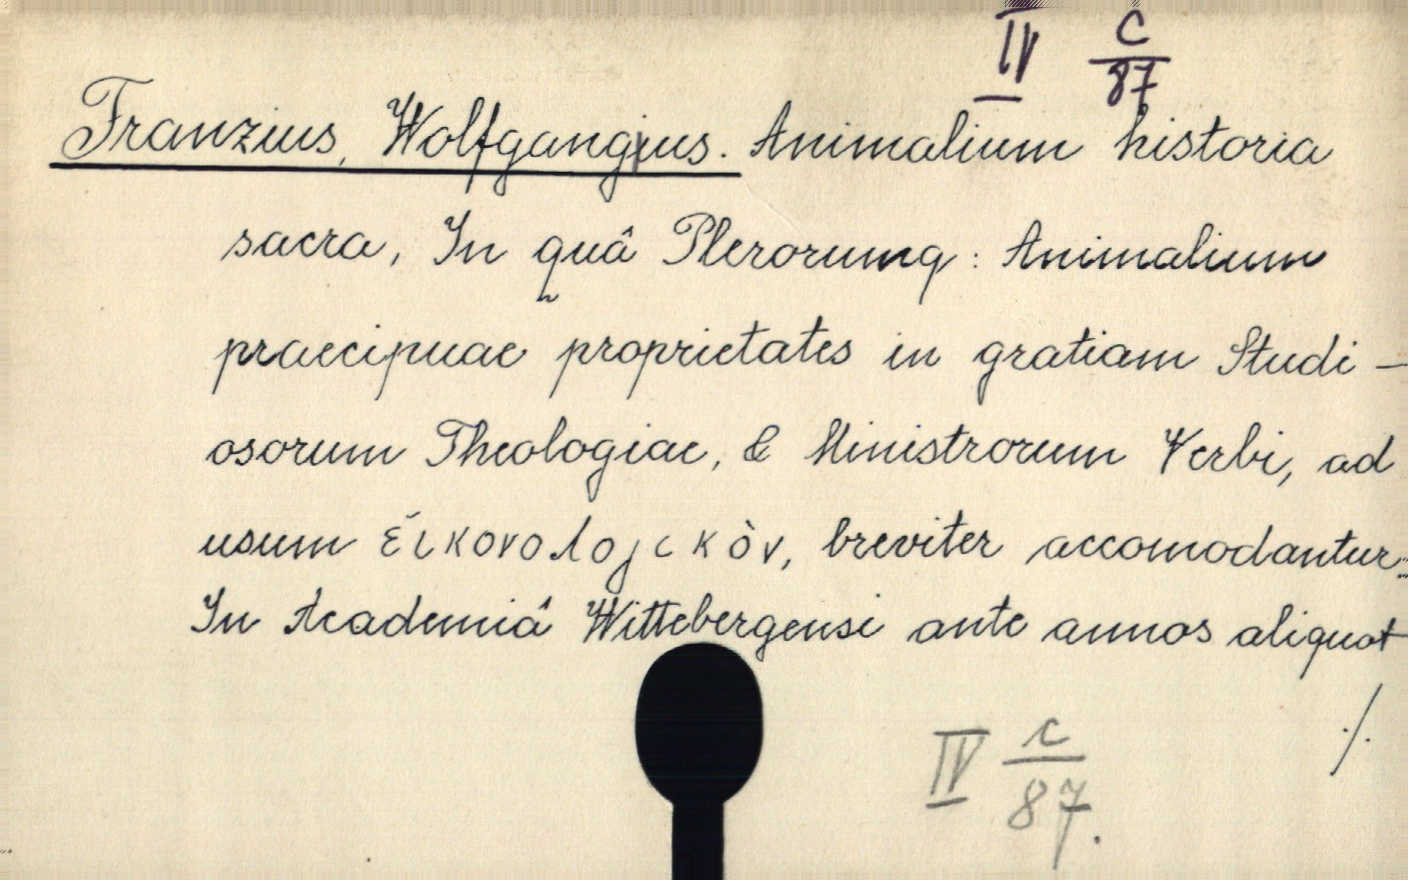 IV C/87
Franzius, Wolfgangius. Animalium historia
sacra, In quâ Plerorumq: Animalium
praecipuae proprietates in gratiam Studi-
osorum Theologiae, & Ministrorum Verbi, ad
usum ἐικονολογικὸν, breviter accomodantur:
In Academiâ Wittebergensi ante annos aliquot
./.
IV c/87.